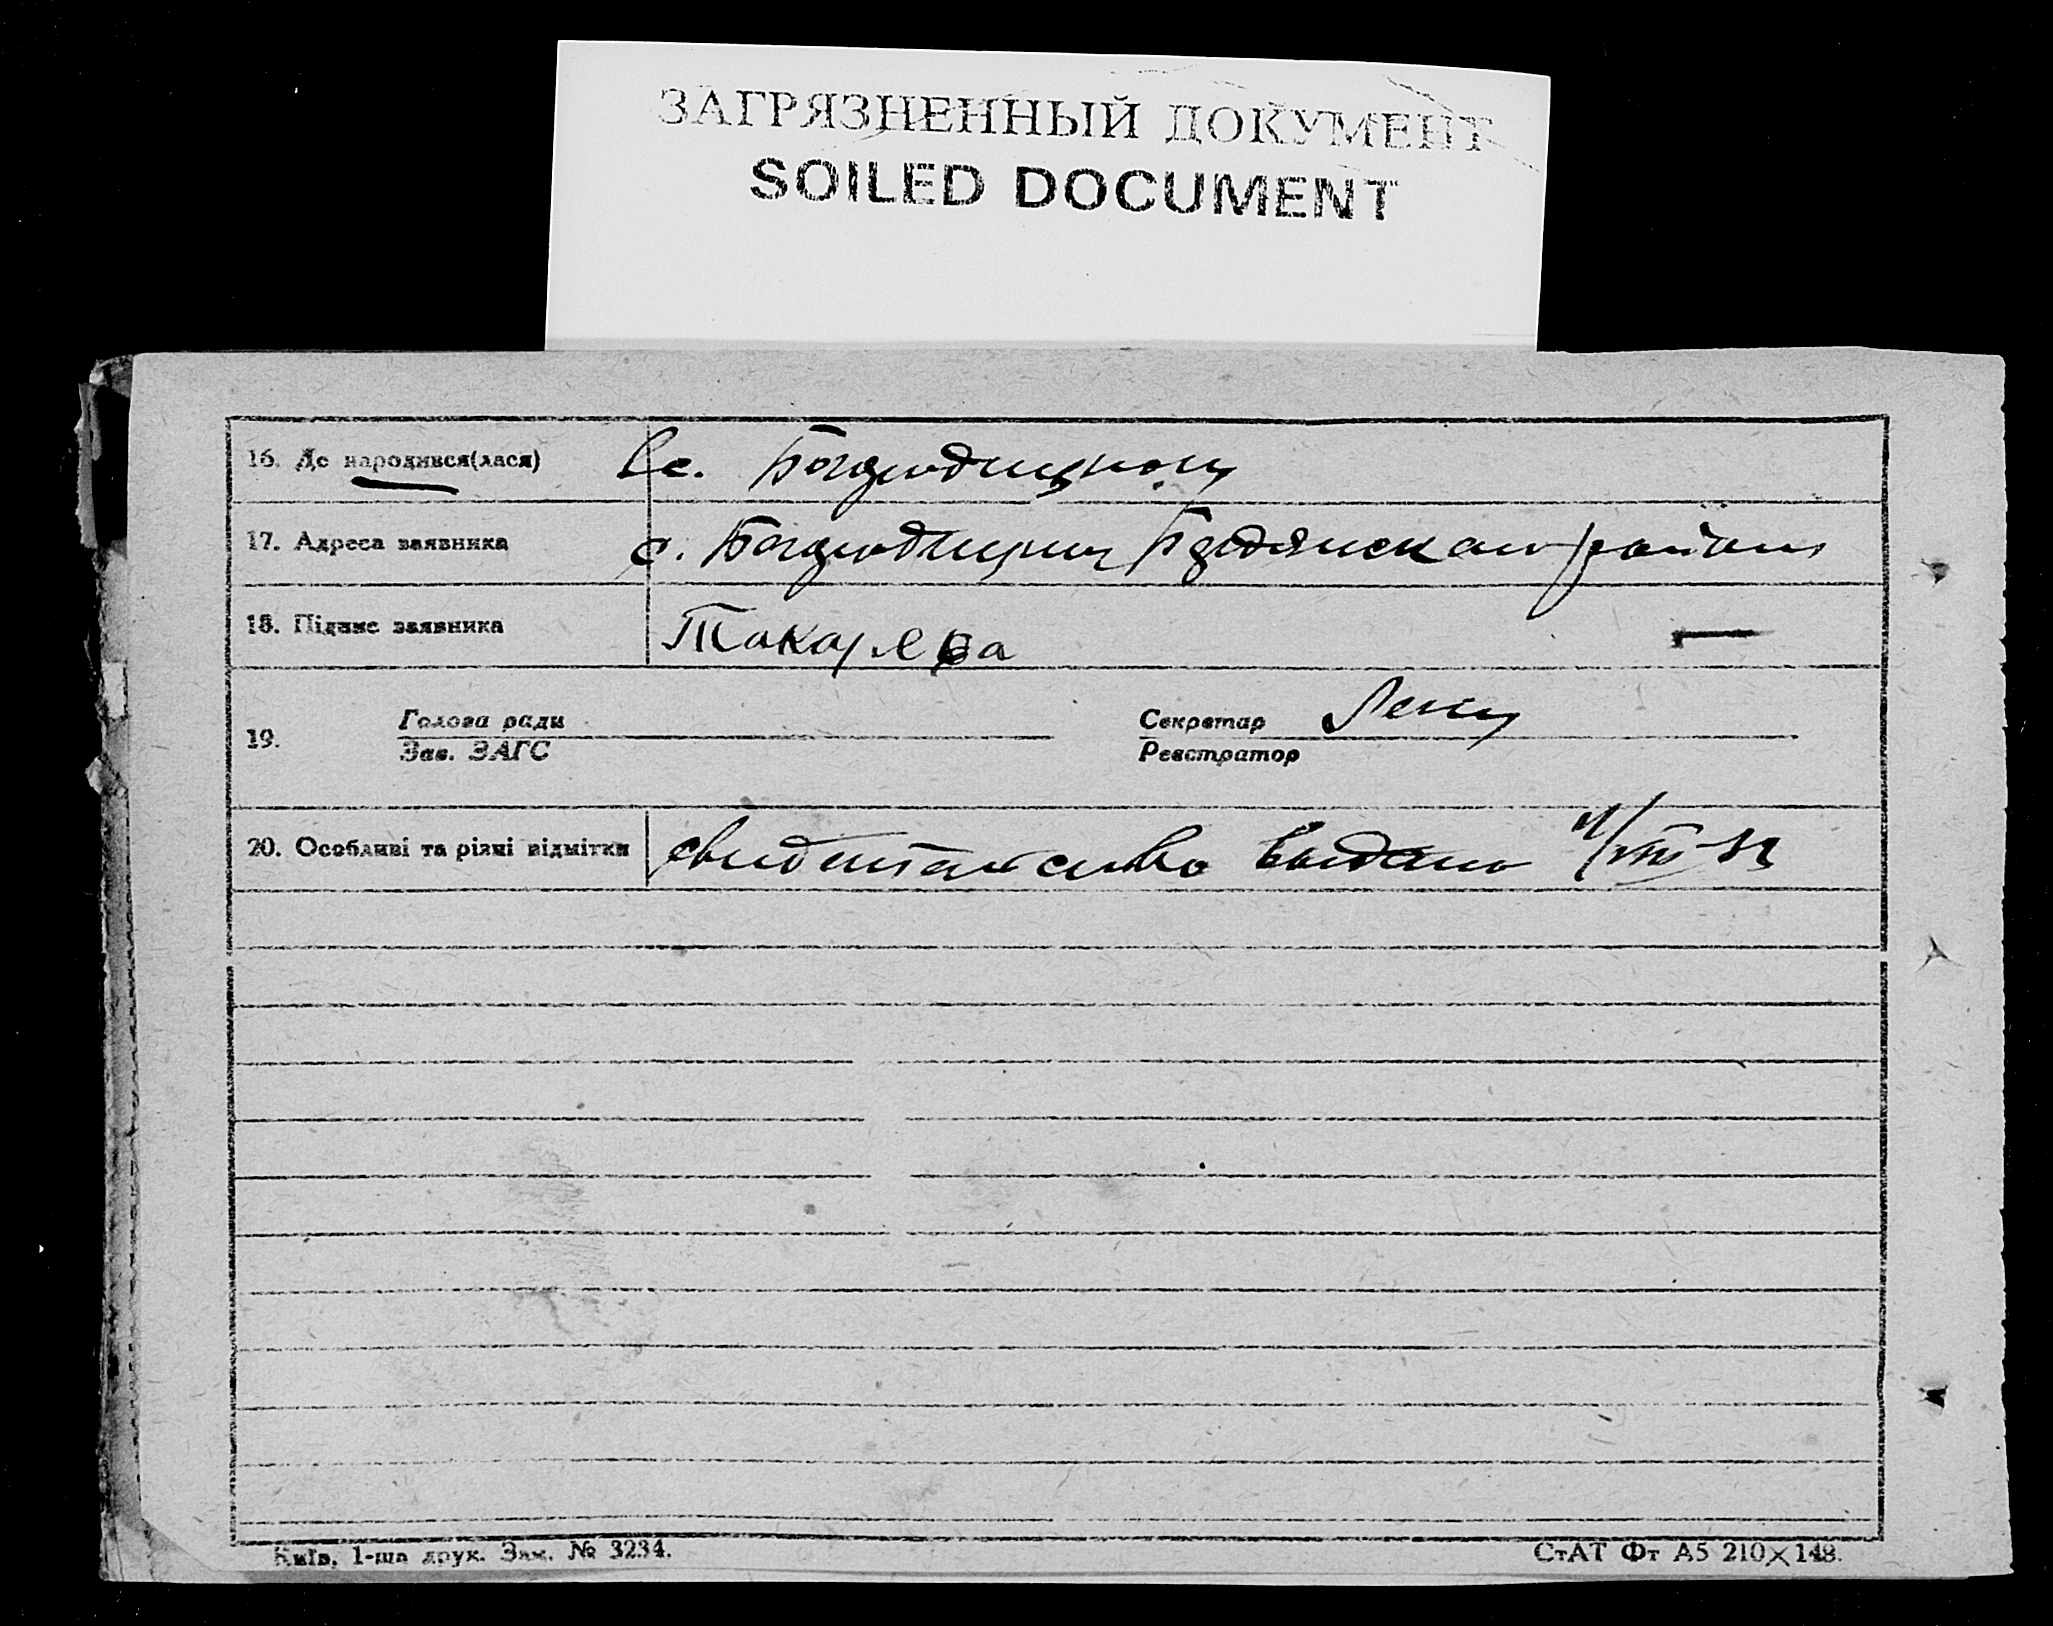 ЗАГРЯЗНЕННЫЙ ДОКУМЕНТ
SOILED DOCUMENT
16. Де народився(лася) В с.
17. Адреса заявника с. района
18. Підпис заявника Токарева
Голова ради Секретар
19.
Зав. ЗАГС Реєстратор
20. Особливі та різні відмітки свидетельство выдано
Київ, 1-ша друк. Зам. № 3234. СтАТ Фт А5 210×148.